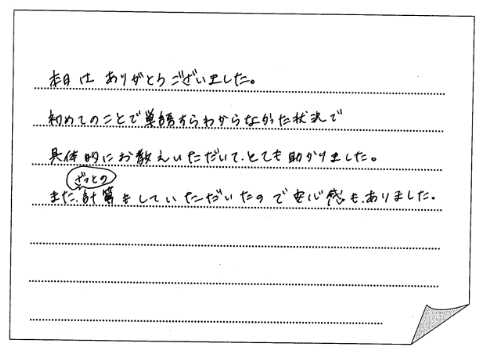 本日は ありがとうございました。
初めてのことで単語すらわからなかった状況で
具体的にお教えいただいて、とても助かりました。
ざっとの
また、計算をしていただいたので安心感も、ありました。